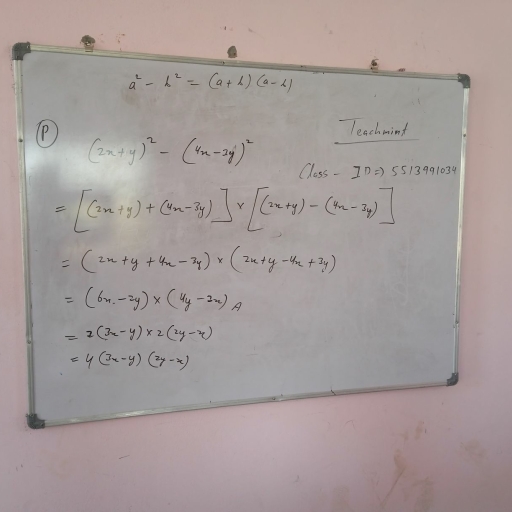 a² - b² = (a+b) (a-b)
Teachmint
(P) (2x+y)² - (4x-3y)²
Class - ID => 5513991034
= [(2x+y) + (4x-3y)] × [(2x+y) - (4x-3y)]
= (2x+y+4x-3y) × (2x+y-4x+3y)
= (6x-2y) × (4y-2x) A
= 2(3x-y) × 2(2y-x)
= 4(3x-y) (2y-x)